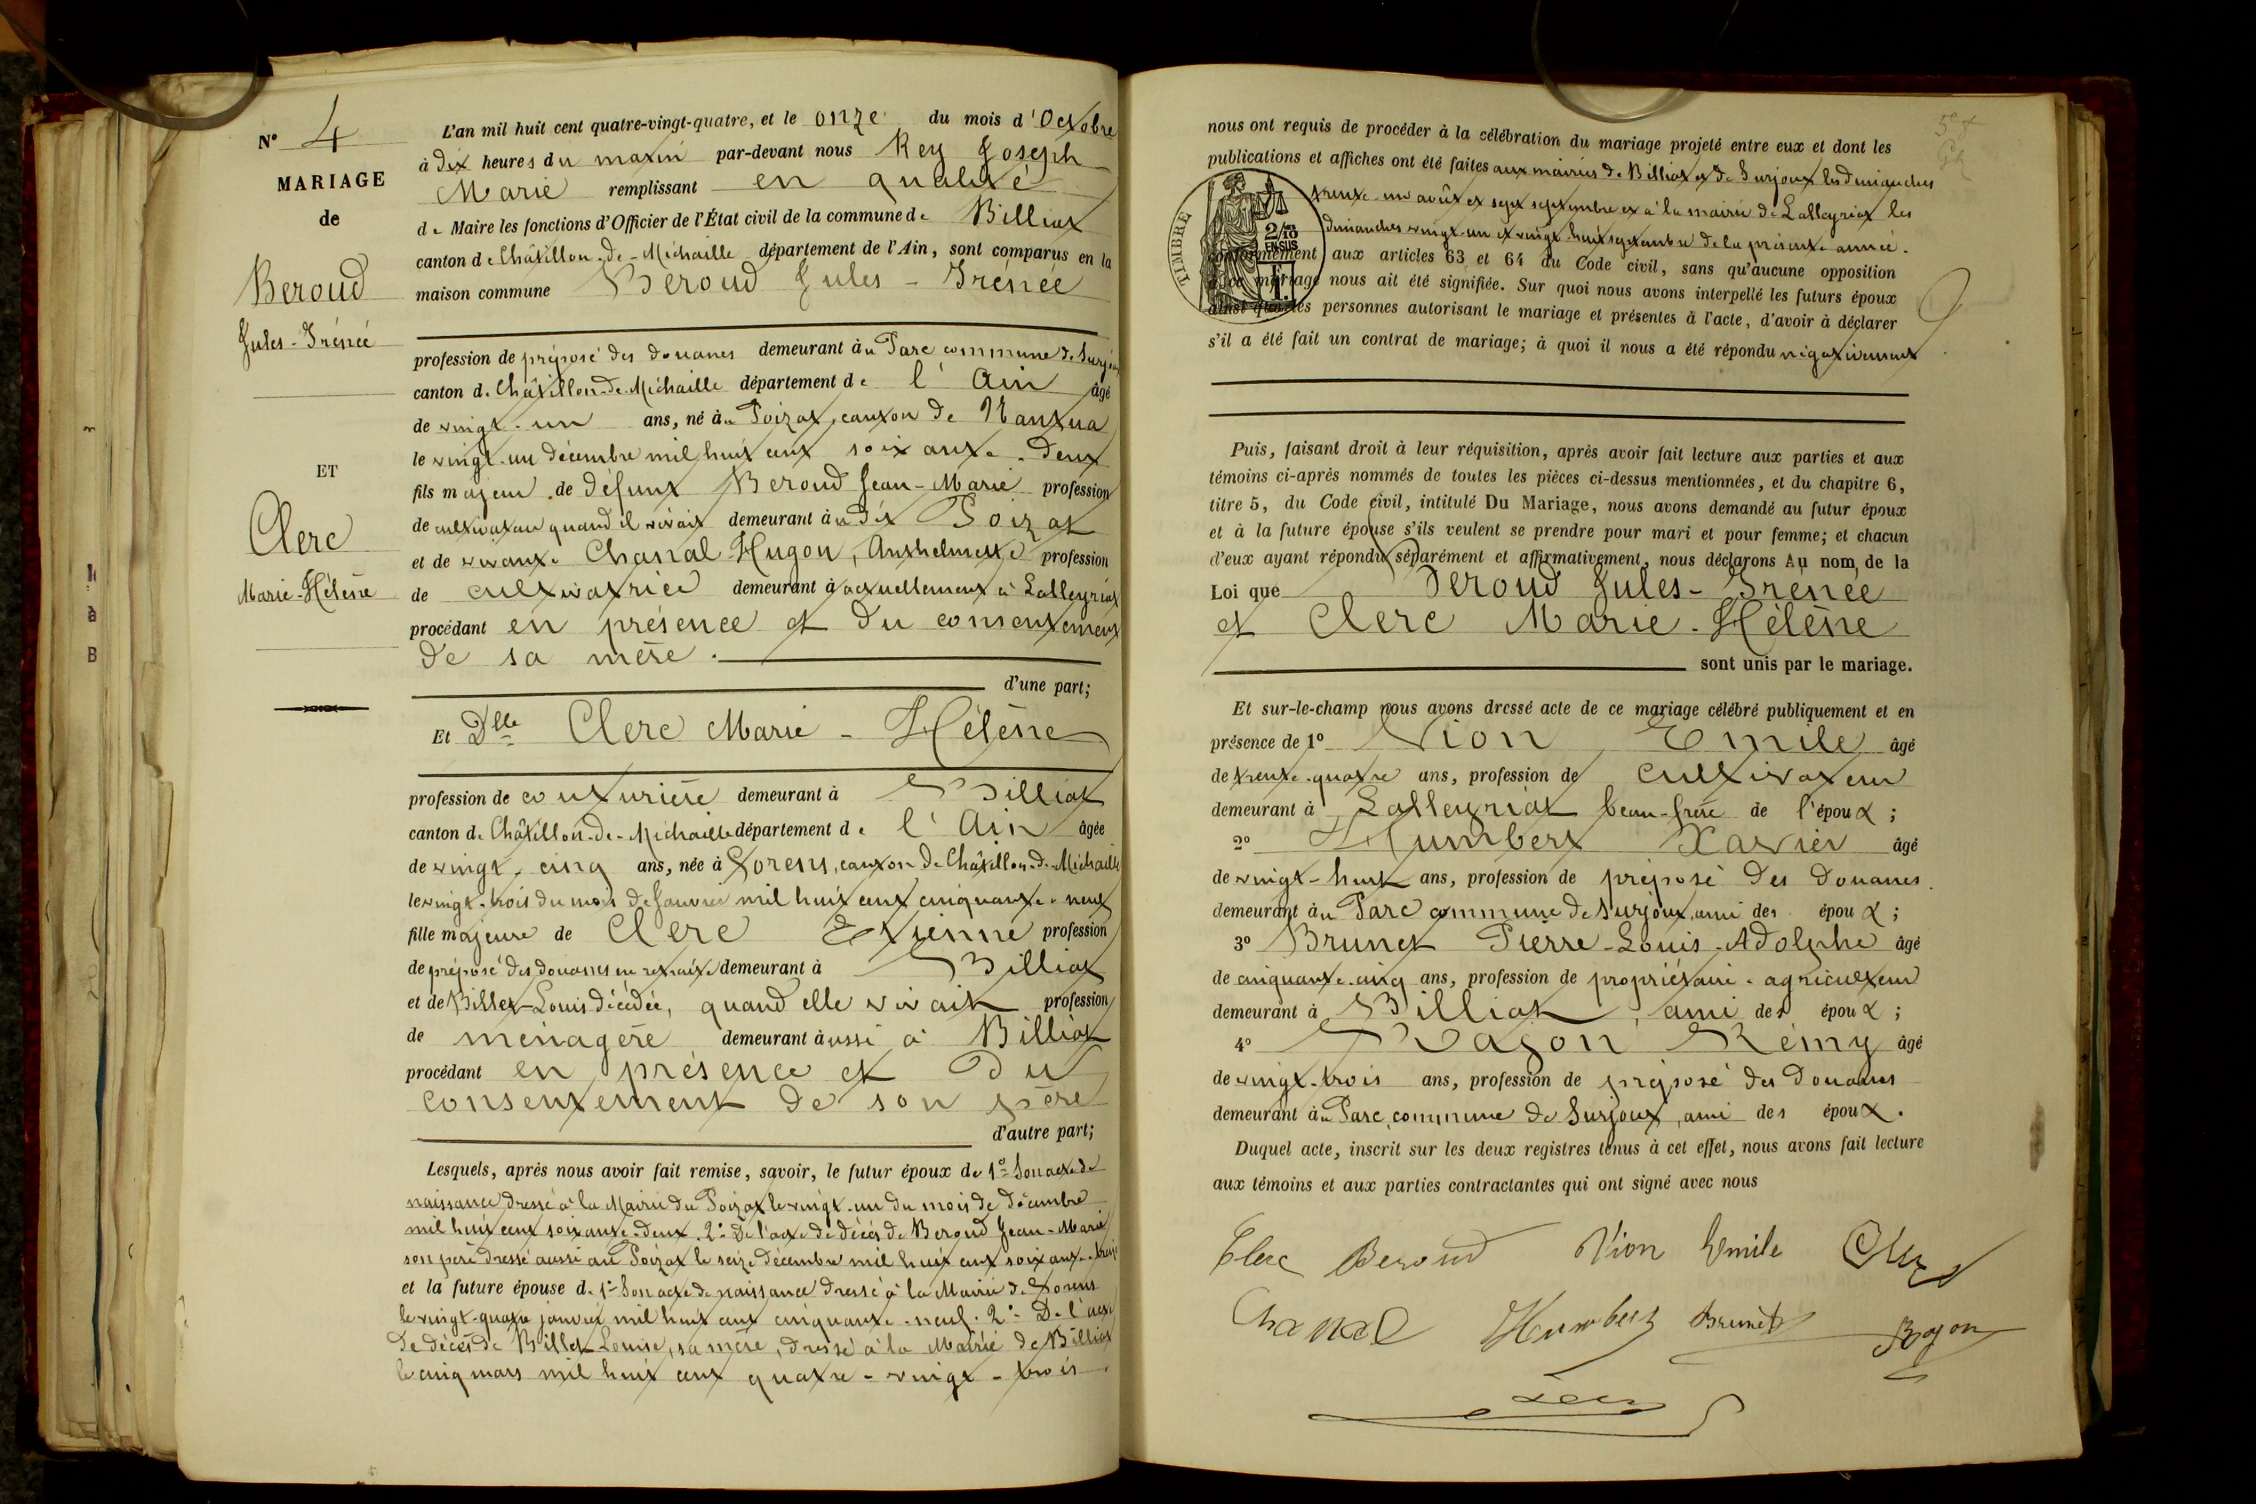 N° 4
MARIAGE
de
Beroud
Jules-Irénée
ET
Clerc
Marie-Hélène
L'an mil huit cent quatre-vingt-quatre, et le onze du mois d'Octobre
à dix heures du matin par-devant nous Rey Joseph
Marie remplissant en qualité
de Maire les fonctions d'Officier de l'État civil de la commune de Billiat
canton de Châtillon-de-Michaille département de l'Ain, sont comparus en la
maison commune Beroud Jules-Irénée
profession de préposé des douanes demeurant au Parc commune de Surjoux
canton de Châtillon-de-Michaille département de l'Ain âgé
de vingt-un ans, né au Poizat, canton de Nantua
le vingt-un décembre mil huit cent soixante-deux
fils majeur de défunt Beroud Jean-Marie profession
de cultivateur quand il vivait demeurant au dit Poizat
et de vivante Chanal-Hugon, Anthelmette profession
de cultivatrice demeurant à actuellement à Lalleyriat
procédant en présence et du consentement
de sa mère.
d'une part;
Et Dlle Clerc Marie-Hélène
profession de couturière demeurant à Billiat
canton de Châtillon-de-Michaille département de l'Ain âgée
de vingt-cinq ans, née à Forens, canton de Châtillon-de-Michaille
le vingt-trois du mois de Janvier mil huit cent cinquante-neuf
fille majeure de Clerc Etienne profession
de préposé des douanes en retraite demeurant à Billiat
et de Billet Louis décédée, quand elle vivait profession
de ménagère demeurant aussi à Billiat
procédant en présence et du
consentement de son père
d'autre part;
Lesquels, après nous avoir fait remise, savoir, le futur époux de 1° Son acte de
naissance dressé à la Mairie du Poizat le vingt-un du mois de décembre
mil huit cent soixante-deux. 2° De l'acte de décès de Beroud Jean-Marie
son père dressé aussi au Poizat le seize décembre mil huit cent soixante-treize
et la future épouse de 1° Son acte de naissance dressé à la Mairie de Forens
le vingt-quatre janvier mil huit cent cinquante-neuf. 2° De l'acte
de décès de Billet Louise, sa mère, dressé à la Mairie de Billiat
le cinq mars mil huit cent quatre-vingt-trois.
nous ont requis de procéder à la célébration du mariage projeté entre eux et dont les
publications et affiches ont été faites aux mairies de Billiat et de Surjoux les dimanches
trente-un août et sept septembre et à la mairie de Lalleyriat les
dimanches vingt-un et vingt-huit septembre de la présente année.
TIMBRE
2/10
EN SUS
conformément aux articles 63 et 64 du Code civil, sans qu'aucune opposition
à ce mariage nous ait été signifiée. Sur quoi nous avons interpellé les futurs époux
ainsi que les personnes autorisant le mariage et présentes à l'acte, d'avoir à déclarer
s'il a été fait un contrat de mariage; à quoi il nous a été répondu négativement
Puis, faisant droit à leur réquisition, après avoir fait lecture aux parties et aux
témoins ci-après nommés de toutes les pièces ci-dessus mentionnées, et du chapitre 6,
titre 5, du Code civil, intitulé Du Mariage, nous avons demandé au futur époux
et à la future épouse s'ils veulent se prendre pour mari et pour femme; et chacun
d'eux ayant répondu séparément et affirmativement, nous déclarons Au nom de la
Loi que Beroud Jules-Irénée
et Clerc Marie-Hélène
sont unis par le mariage.
Et sur-le-champ nous avons dressé acte de ce mariage célébré publiquement et en
présence de 1° Vion Emile âgé
de trente-quatre ans, profession de cultivateur
demeurant à Lalleyriat beau-frère de l'époux;
2° Humbert Xavier âgé
de vingt-huit ans, profession de préposé des douanes.
demeurant au Parc commune de Surjoux, ami des époux;
3° Brunet Pierre-Louis-Adolphe âgé
de cinquante-cinq ans, profession de propriétaire-agriculteur
demeurant à Billiat, ami des époux;
4° Rajon Rémy âgé
de vingt-trois ans, profession de préposé des douanes
demeurant au Parc, commune de Surjoux, ami des époux.
Duquel acte, inscrit sur les deux registres tenus à cet effet, nous avons fait lecture
aux témoins et aux parties contractantes qui ont signé avec nous
Clerc Beroud Vion Emile Clerc
Chanal Humbert Brunet Rajon